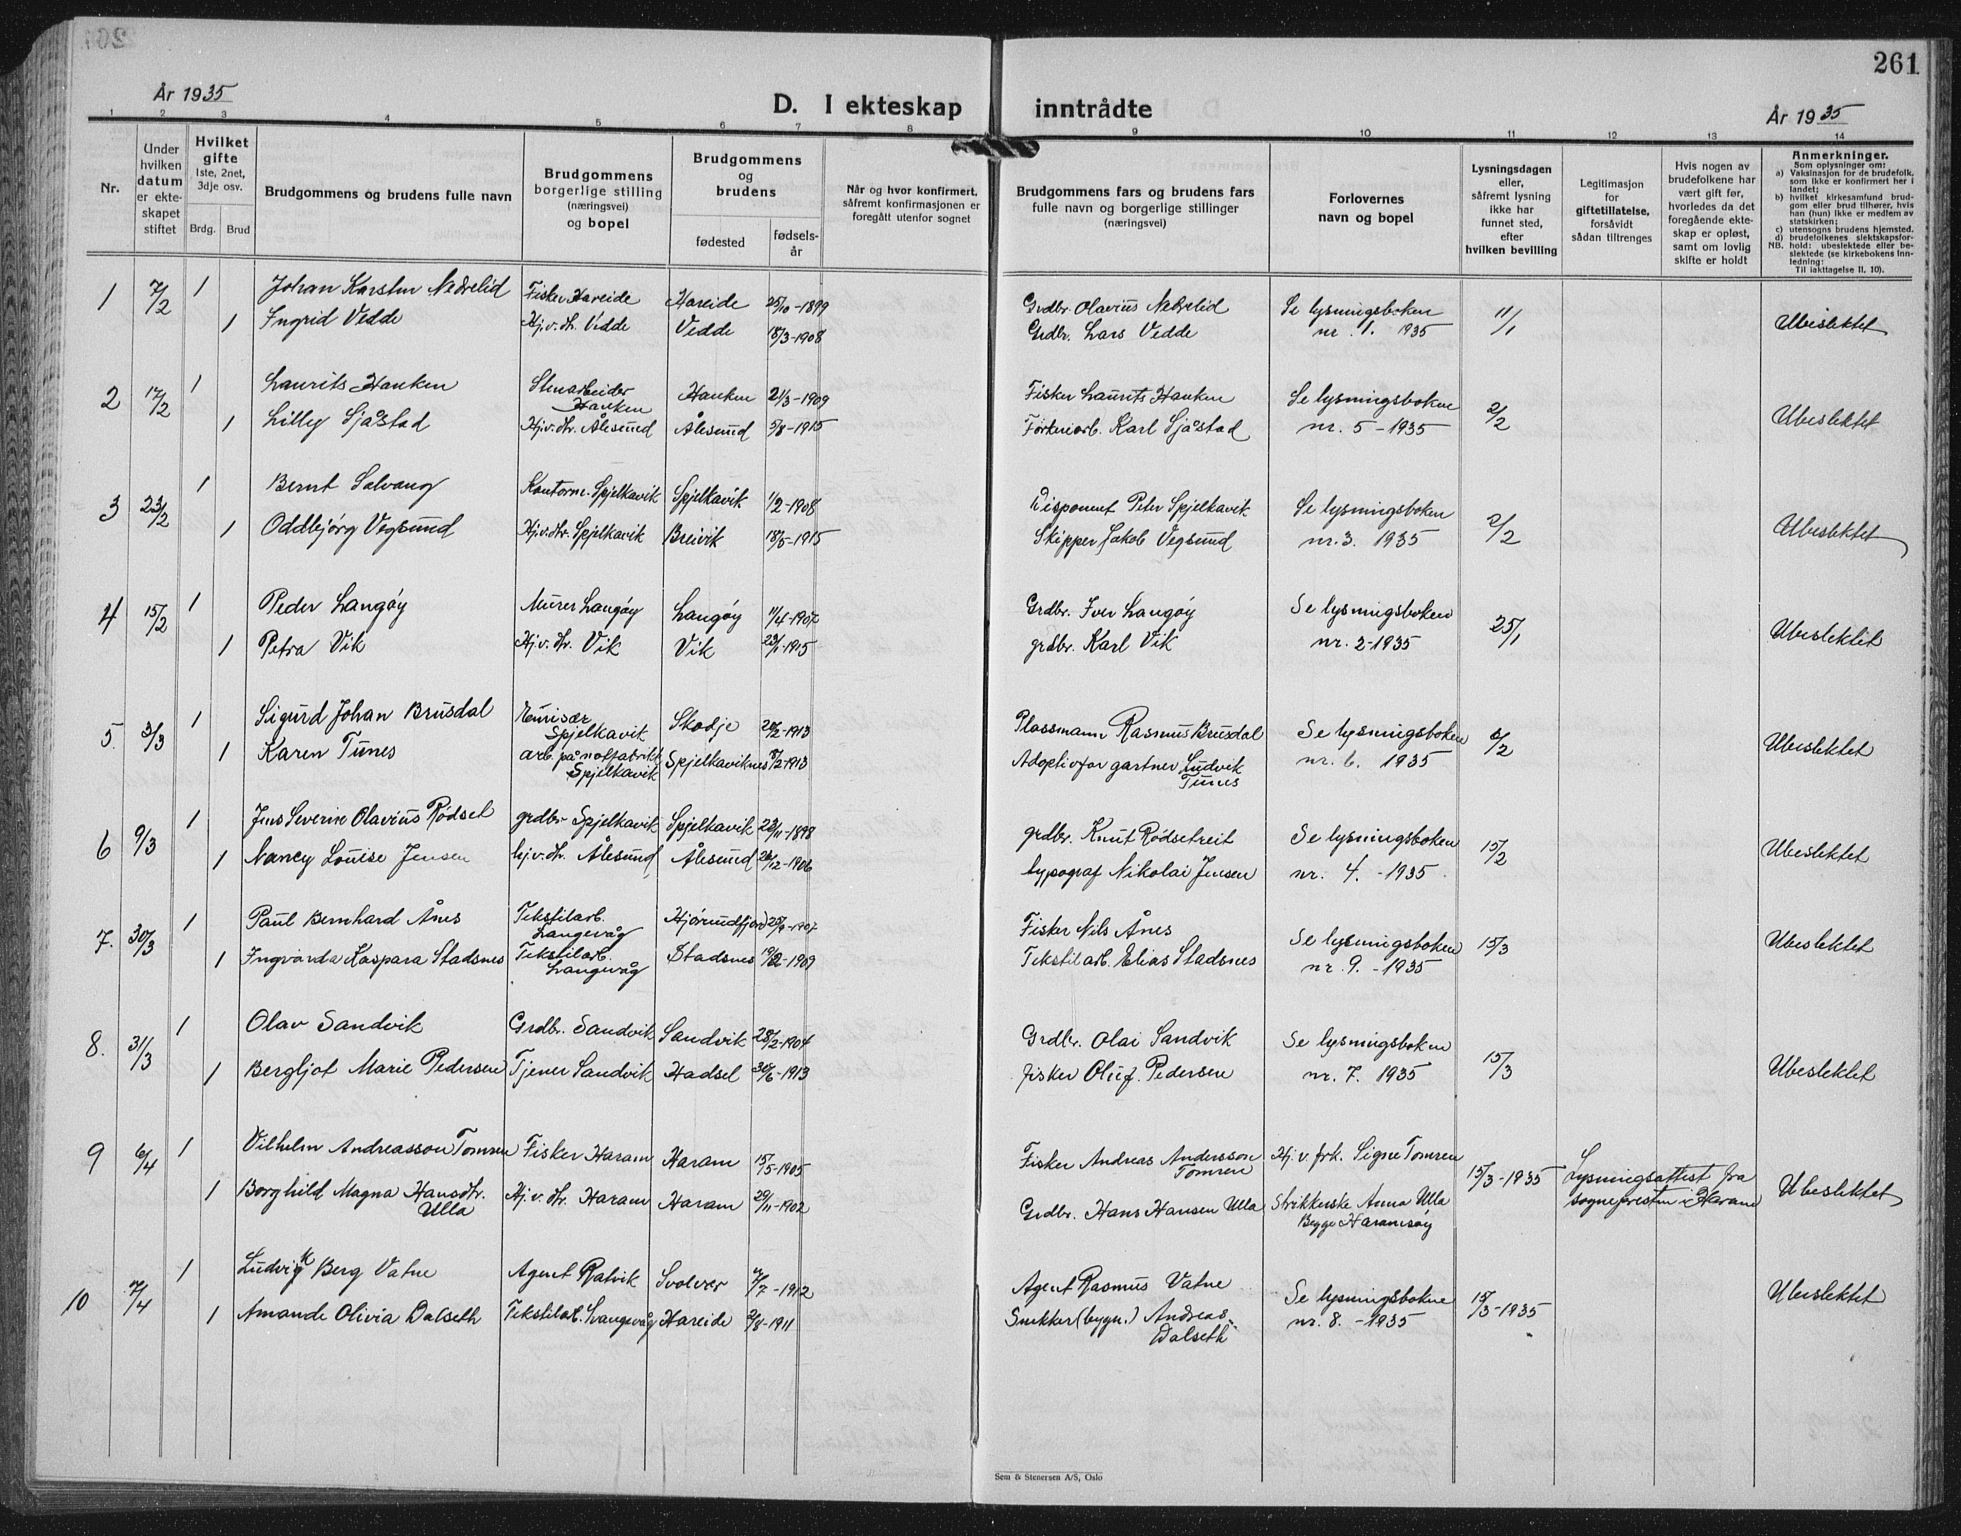 261
År 1935
D. I ekteskap inntrådte
År 1935
1 2 3 4 5 6 7 8 9 10 11 12 13 14
Nr.
Under hvilken datum er ekteskapet stiftet
Hvilket gifte
1ste, 2net, 3dje osv.
Brdg. Brud
Brudgommens og brudens fulle navn
Brudgommens borgerlige stilling (næringsvei) og bopel
Brudgommens og brudens
fødested
fødselsår
Når og hvor konfirmert, såfremt konfirmasjonen er foregått utenfor sognet
Brudgommens fars og brudens fars fulle navn og borgerlige stillinger (næringsvei)
Forlovernes navn og bopel
Lysningsdagen eller, såfremt lysning ikke har funnet sted, efter hvilken bevilling
Legitimasjon for giftetillatelse, forsåvidt sådan tiltrenges
Hvis nogen av brudefolkene har vært gift før, hvorledes da det foregående ekteskap er opløst, samt om lovlig skifte er holdt
Anmerkninger.
Som oplysninger om:
a) Vaksinasjon for de brudefolk, som ikke er konfirmert her i landet;
b) hvilket kirkesamfund brudgom eller brud tilhører, hvis han (hun) ikke er medlem av statskirken;
c) utensogns brudens hjemsted.
d) brudefolkenes slektskapsforhold: ubeslektede eller beslektede (se kirkebokens innledning:
NB. Til iakttagelse II, 10).
1 7/2 1 Johan Karsten Nedrelid Fisker Hareide Hareide 25/10-1899 Grdbr. Olavius Nedrelid Se lysningsboken 11/1 Ubeslektet
1 Ingrid Vedde Hj.v.dtr. Vedde Vedde 18/3-1908 Grdbr. Lars Vedde nr. 1. 1935
2 17/2 1 Laurits Hauken Stenarbeider Hauken Hauken 21/3-1909 Fisker Laurits Hauken Se lysningsboken 2/2 Ubeslektet
1 Lilly Sjåstad Hj.v.dtr. Ålesund Ålesund 5/8-1915 Karl Sjåstad nr. 5-1935
3 23/2 1 Bernt Solvang Kontorm. Spjelkavik Spjelkavik 1/2-1908 Disponent Peter Spjelkavik Se lysningsboken 2/2 Ubeslektet
1 Oddbjørg Vegsund Hj.v.dtr. Spjelkavik Breivik 18/5-1915 Skipper Jakob Vegsund nr. 3. 1935
4 15/2 1 Peder Langøy Murer Langøy Langøy 11/4-1907 Grdbr. Iver Langøy Se lysningsboken 25/1 Ubeslektet
1 Petra Vik Hj.v.dtr. Vik Vik 23/1-1915 grdbr. Karl Vik nr. 2-1935
5. 3/3 1 Sigurd Johan Brusdal Spjelkavik Skodje 20/2-1913 Plassmann Rasmus Brusdal Se lysningsboken 8/2 Ubeslektet
1 Karen Tunes arb. på notfabrikk Spjelkavik Spjelkaviknes 8/2-1913 Adoptivfar gartner Ludvik Tunes nr. 6. 1935
6 9/3 1 Jens Severin Olavius Rødset grdbr Spjelkavik Spjelkavik 23/11-1898 grdbr. Knut Rødsetreit Se lysningsboken 15/2 Ubeslektet
1 Nancy Louise Jensen hj.v.dtr. Ålesund Ålesund 26/12-1906 typograf Nikolai Jensen nr. 4. -1935
7. 30/3 1 Paul Bernhard Ånes Tekstilarb. Langevåg Hjørundfjord 25/9-1907 Fisker Nils Ånes Se lysningsboken 15/3 Ubeslektet
1 Ingvarda Kaspara Stadsnes Tekstilarb. Langevåg Stadsnes 19/2-1909 Tekstilarb. Elias Stadsnes nr. 9. -1935
8. 31/3 1 Olav Sandvik Grdbr. Sandvik Sandvik 28/2-1904 Grdbr. Olai Sandvik Se lysningsboken 15/3 Ubeslektet
1 Bergljot Marie Pedersen Tjener Sandvik Hadsel 30/6-1913 fisker Oluf Pedersen nr. 7. 1935
9 6/4 1 Vilhelm Andreasson Tomren Fisker Haram Haram 15/5-1905 Fisker Andreas Andersson Tomren Hj.v. frk. Signe Tomren 15/3-1935 Lysningsattest fra sognepresten i Haram Ubeslektet
1 Borghild Magna Hansdtr. Ulla Hj.v.dtr. Haram Haram 29/11-1902 Grdbr. Hans Hansen Ulla Strikkerske Anna Ulla Begge Haramsøy
10 7/4 1 Ludvik Berg Vatne Agent Ratvik Svolvær 7/7-1912 Agent Rasmus Vatne Se lysningsboken 15/3-1935 Ubeslektet
1 Amande Olivia Dalseth Tekstilarb. Langevåg Hareide 2/8-1911 Snekker (bygn.) Andreas Dalseth nr. 8. -1935
Sem & Stenersen A/S, Oslo